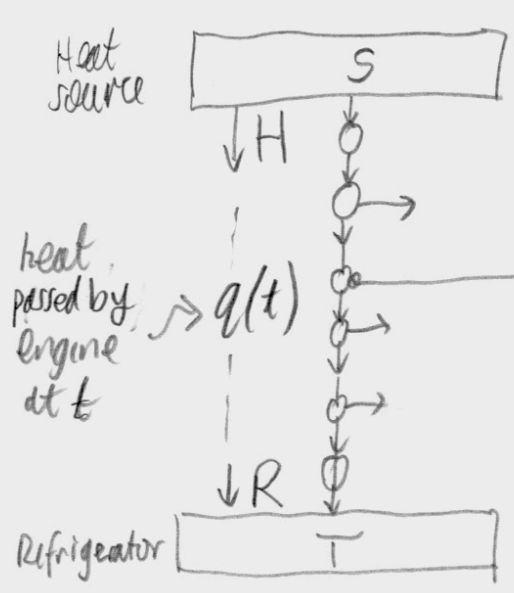 Heat
source
S
H
heat
passed by
engine
at t
q(t)
R
Refrigerator
T